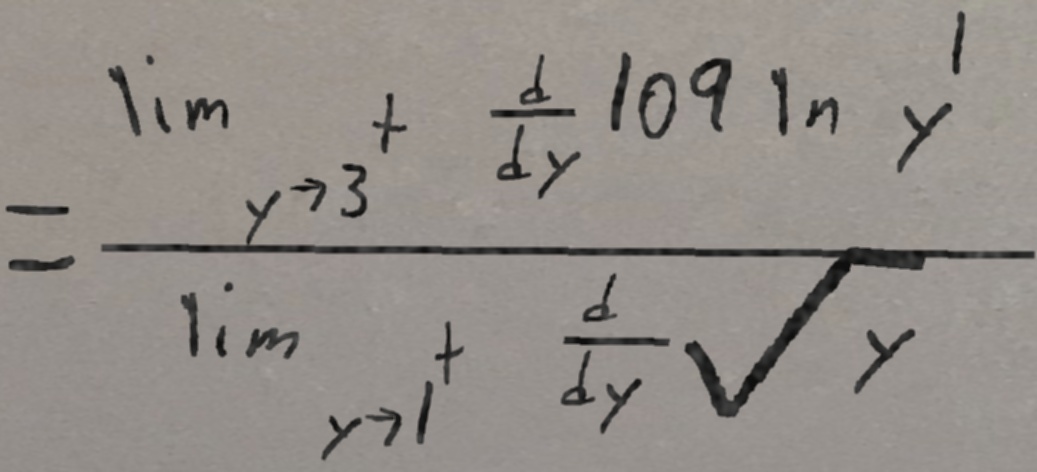 = \frac{\lim_{y \to 3^+} \frac{d}{dy} 109 \ln y^1}{\lim_{y \to 1^+} \frac{d}{dy} \sqrt{y}}